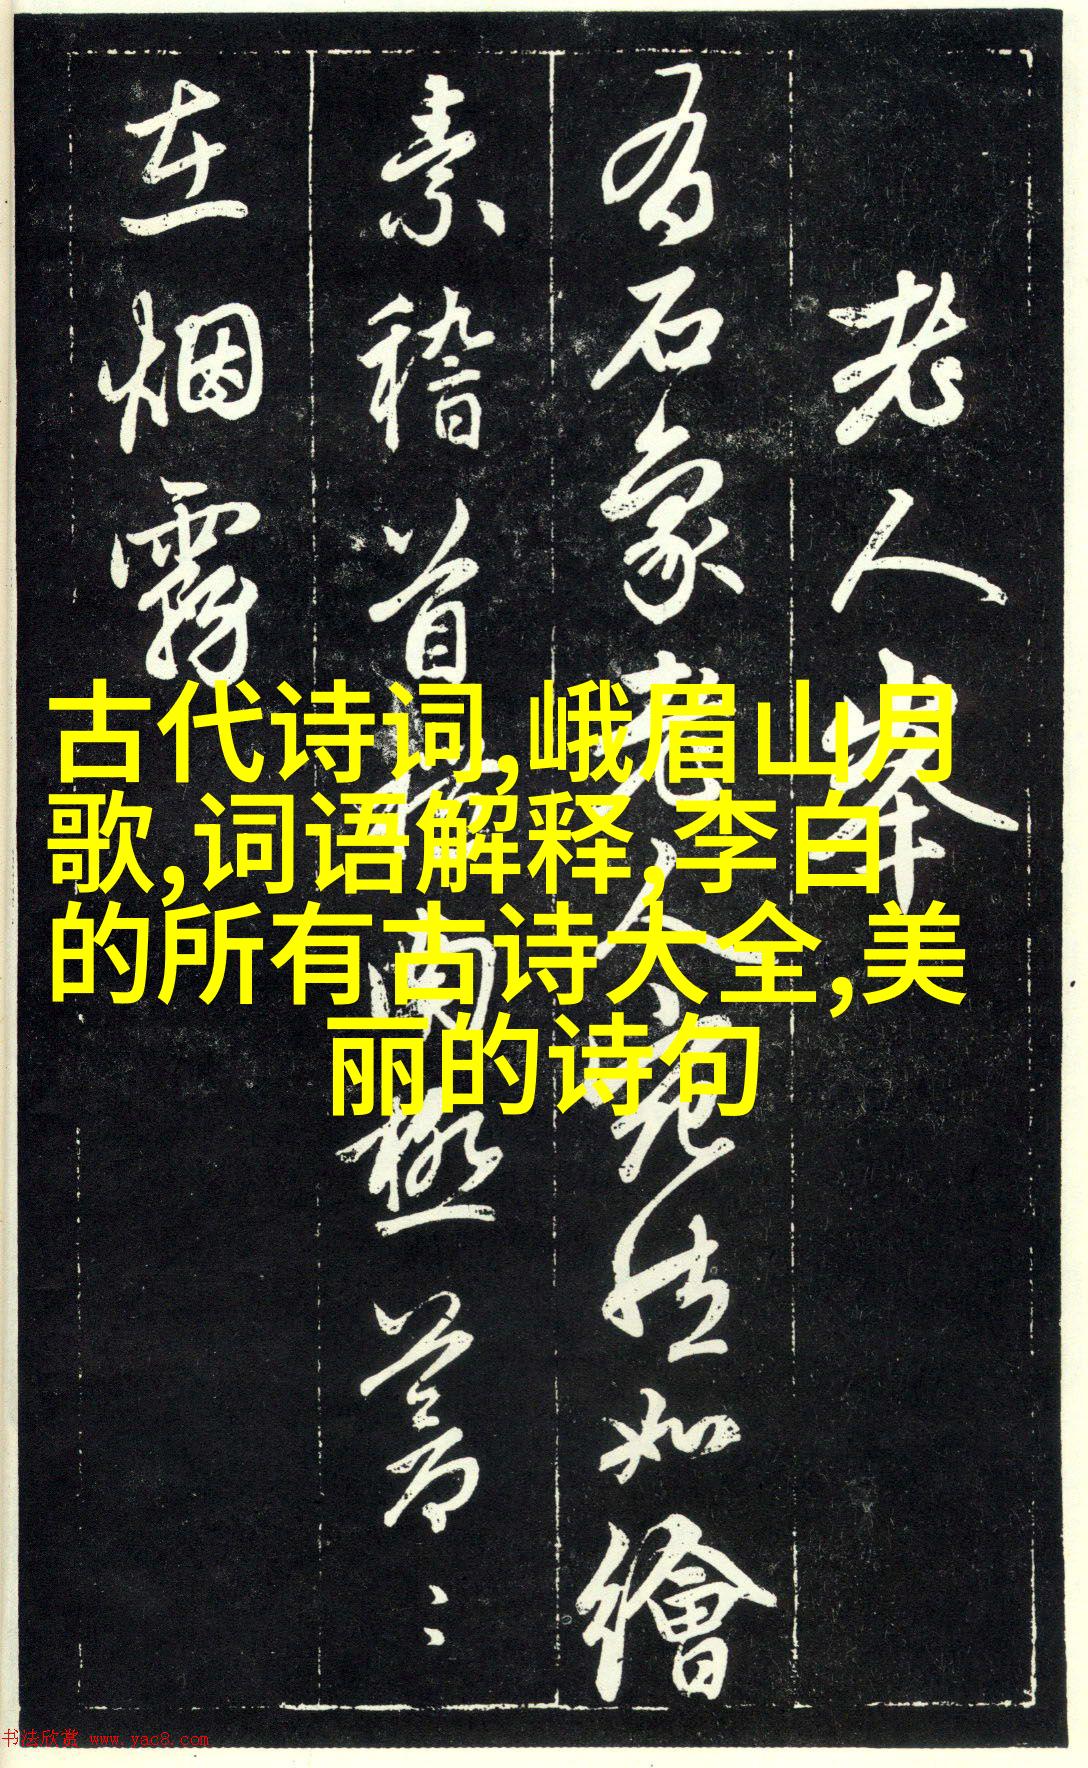 老人峯
有石象老人宛然如繪
素稽首南極蒼〻
在烟霧
古代诗词,峨眉山月
歌,词语解释,李白
的所有古诗大全,美
丽的诗句
书法欣赏 www.yac8.com